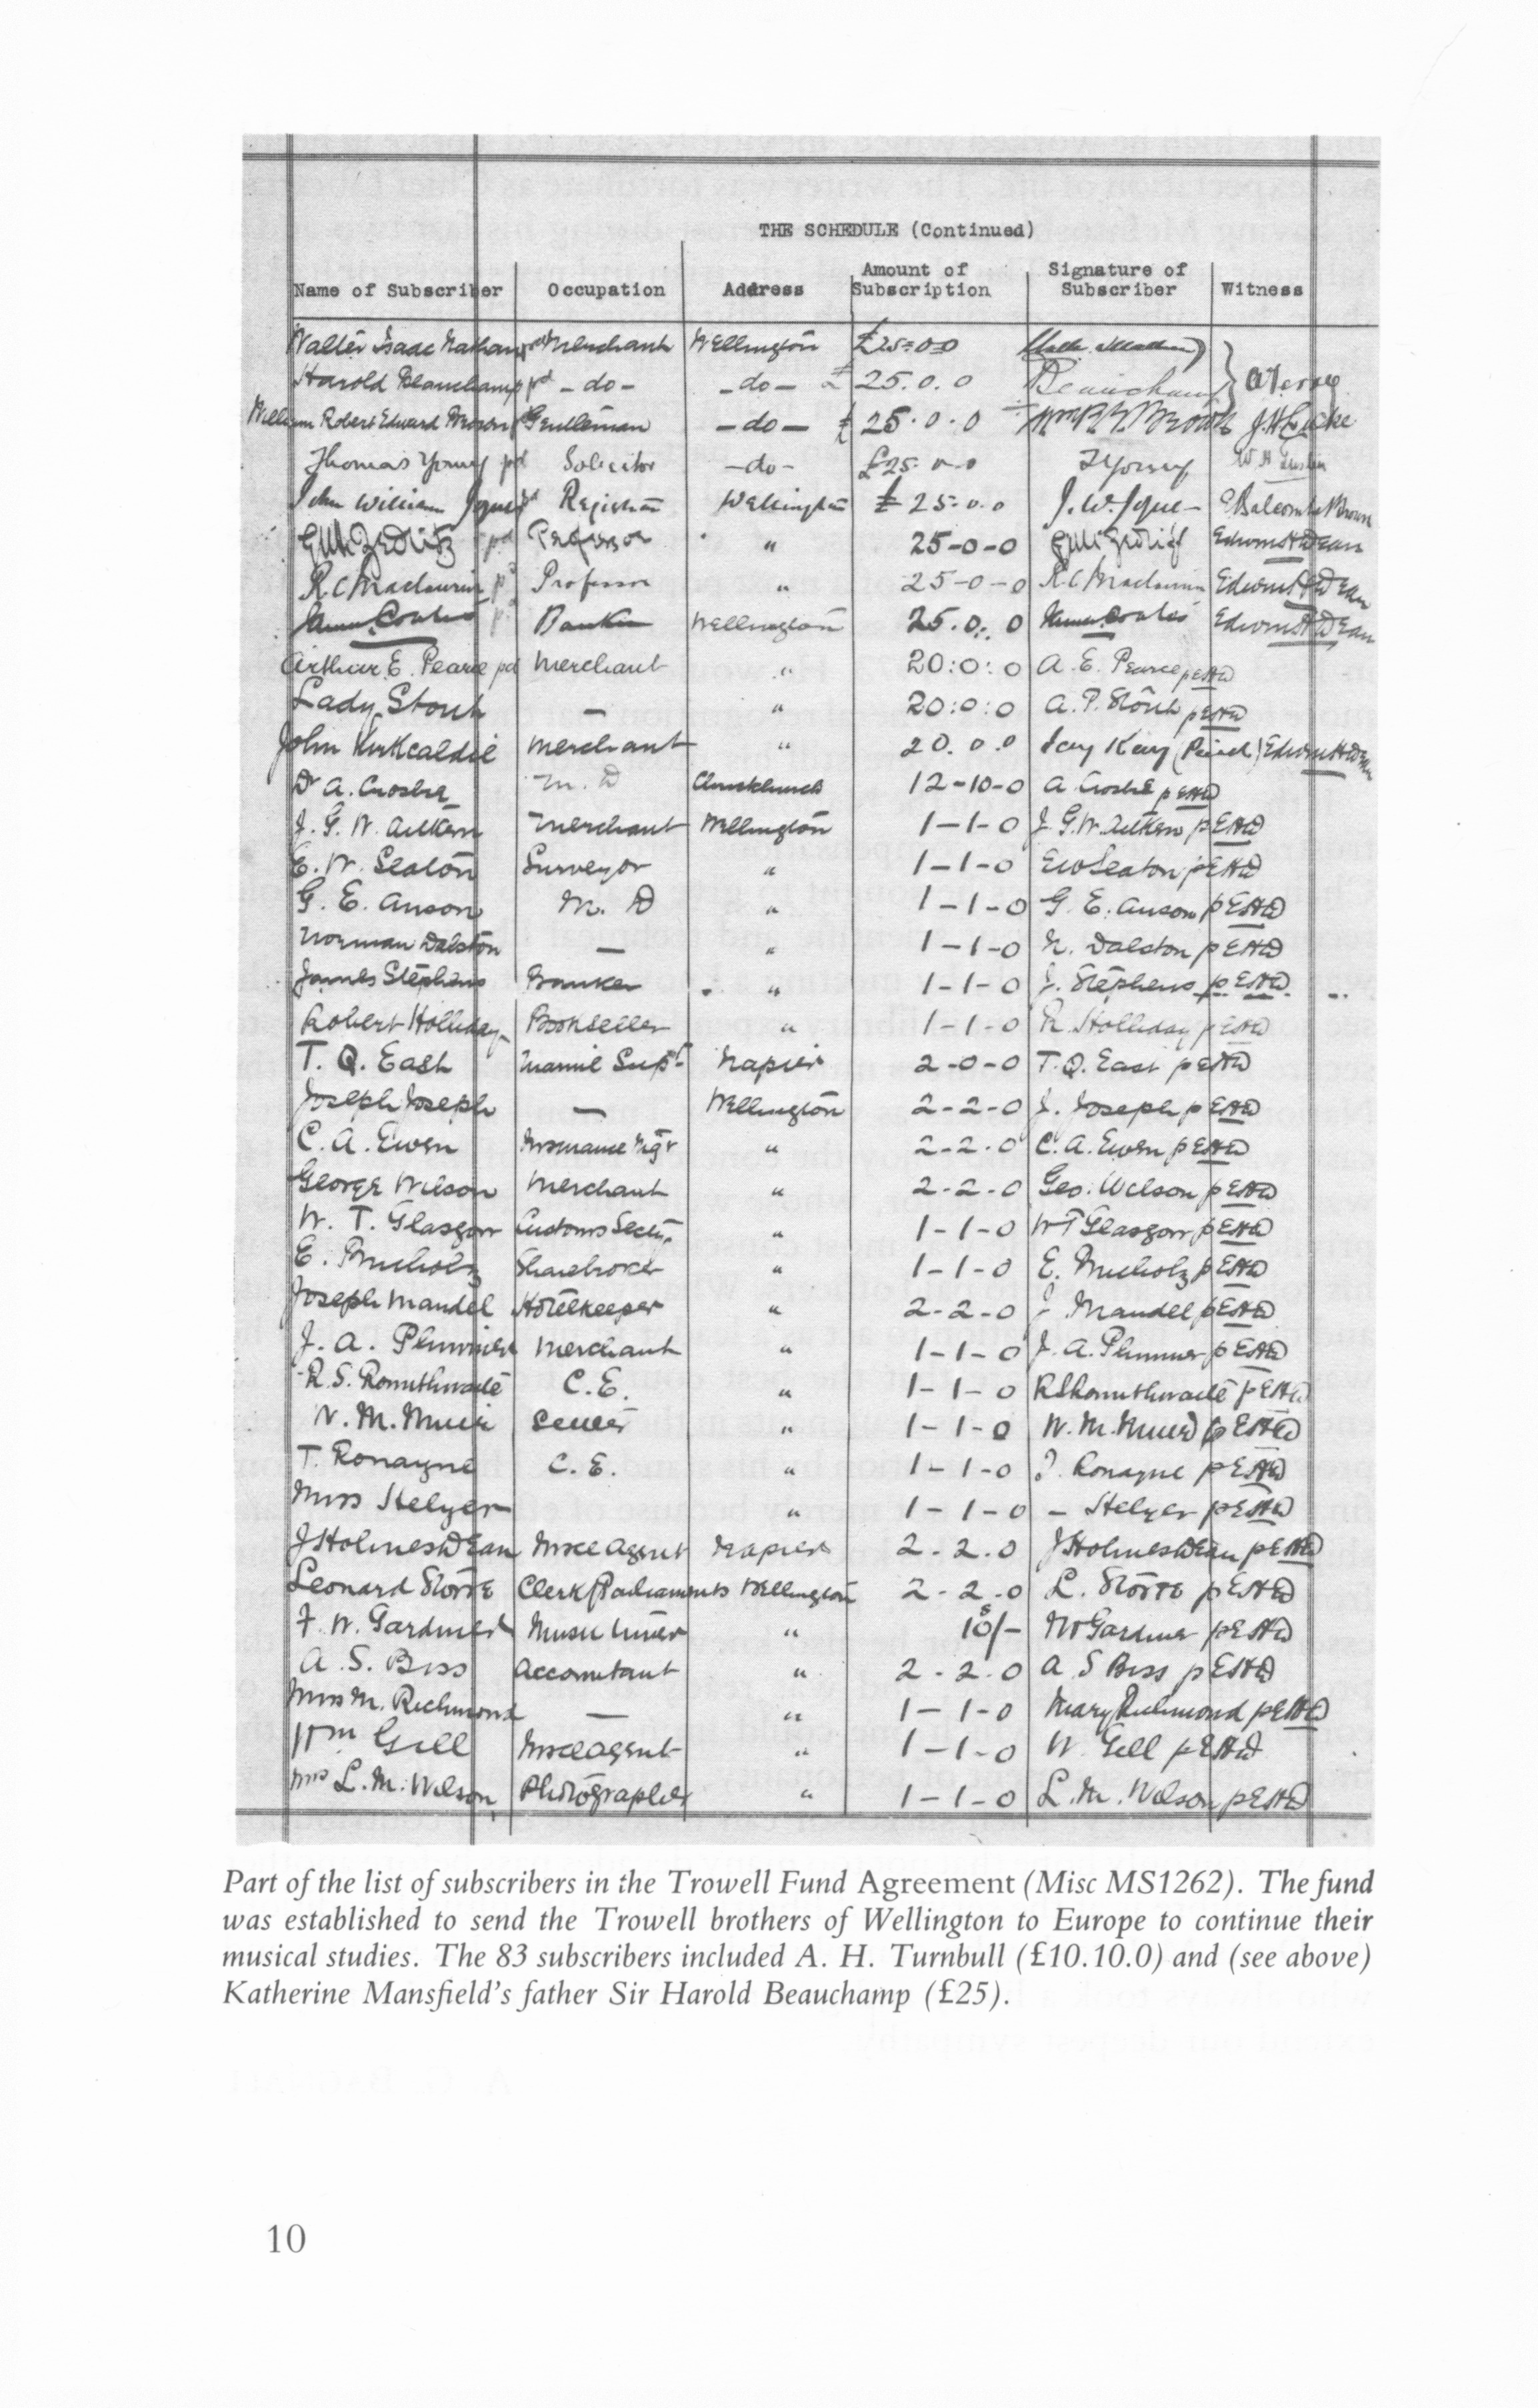 THE SCHEDULE (Continued)
Name of Subscriber Occupation Address Amount of Subscription Signature of Subscriber Witness
Walter Isaac Nathan pd Merchant Wellington £25=0=0
Harold Beauchamp pd - do - - do - £ 25.0.0 Beauchamp
William Robert Edward Brown Gentleman - do - £ 25.0.0 WmR E Brown
Thomas Young pd Solicitor - do - £25-0-0 TYoung
John William Wellington £25-0-0 J.W. Balcombe Brown
GWvZedlitz pd Professor " 25-0-0 GWvZedlitz EdwinHDean
RCMaclaurin pd Professor " 25-0-0 RCMaclaurin EdwinHDean
James Coates pd Banker Wellington 25.0.0 James Coates EdwinHDean
Arthur E. Pearce pd Merchant " 20:0:0 A. E. Pearce pEHD
Lady Stout — " 20:0:0 A. P. Stout pEHD
John Kirkcaldie Merchant " 20.0.0 EdwinHDean
Dr A. Crosbie M. D Christchurch 12-10-0 A Crosbie pEHD
J. G. W. Aitken Merchant Wellington 1-1-0 J. G. W. Aitken pEHD
E. W. Seaton Surveyor " 1-1-0 EWSeaton pEHD
G. E. Anson M. D " 1-1-0 G. E. Anson pEHD
Norman Dalston — " 1-1-0 N. Dalston pEHD
James Stephens Banker " 1-1-0 J. Stephens pEHD
Robert Holliday Bookseller " 1-1-0 R. Holliday pEHD
T. Q. East Napier 2-0-0 T. Q. East pEHD
Joseph Joseph — Wellington 2-2-0 J. Joseph pEHD
C. A. Ewen Insurance Mgr " 2-2-0 C. A. Ewen pEHD
George Wilson Merchant " 2-2-0 Geo. Wilson pEHD
W. T. Glasgow Customs Secty " 1-1-0 WTGlasgow pEHD
E. Bucholz Sharebroker " 1-1-0 E. Bucholz pEHD
Joseph Mandel Hotelkeeper " 2-2-0 J Mandel pEHD
J. A. Plimmer Merchant " 1-1-0 J. A. Plimmer pEHD
R. S. Rounthwaite C. E. " 1-1-0 RSRounthwaite pEHD
W. M. Muir " 1-1-0 W. M. Muir pEHD
T. Ronayne C. E. " 1-1-0 T. Ronayne pEHD
Miss Helyer " 1-1-0 - Helyer pEHD
JHolmesDean Insce Agent Napier 2.2.0 JHolmesDean pEHD
Leonard Stowe Clerk Parliaments Wellington 2-2-0 L. Stowe pEHD
F. W. Gardner Music Tuner " 10s/- FWGardner pEHD
A. S. Biss Accountant " 2.2.0 A S Biss pEHD
Miss M. Richmond — " 1-1-0 Mary Richmond pEHD
Wm Gill Insce Agent " 1-1-0 W. Gill pEHD
Mrs L. M. Wilson Photographer " 1-1-0 L. M. Wilson pEHD
Part of the list of subscribers in the Trowell Fund Agreement (Misc MS1262). The fund
was established to send the Trowell brothers of Wellington to Europe to continue their
musical studies. The 83 subscribers included A. H. Turnbull (£10.10.0) and (see above)
Katherine Mansfield's father Sir Harold Beauchamp (£25).
10